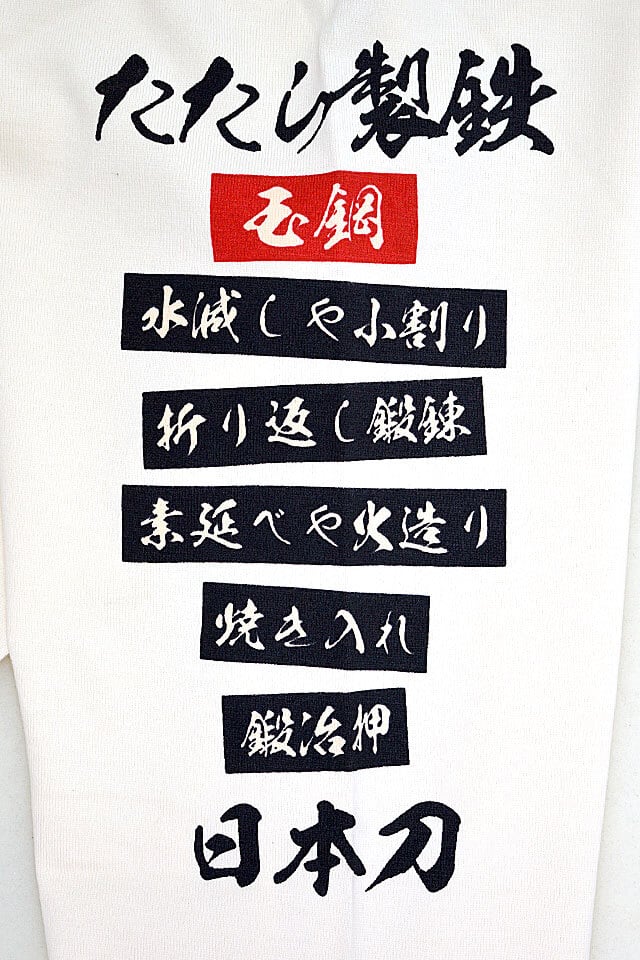 たたら製鉄
玉鋼
水減しや小割り
折り返し鍛錬
素延べや火造り
焼き入れ
鍛冶押
日本刀